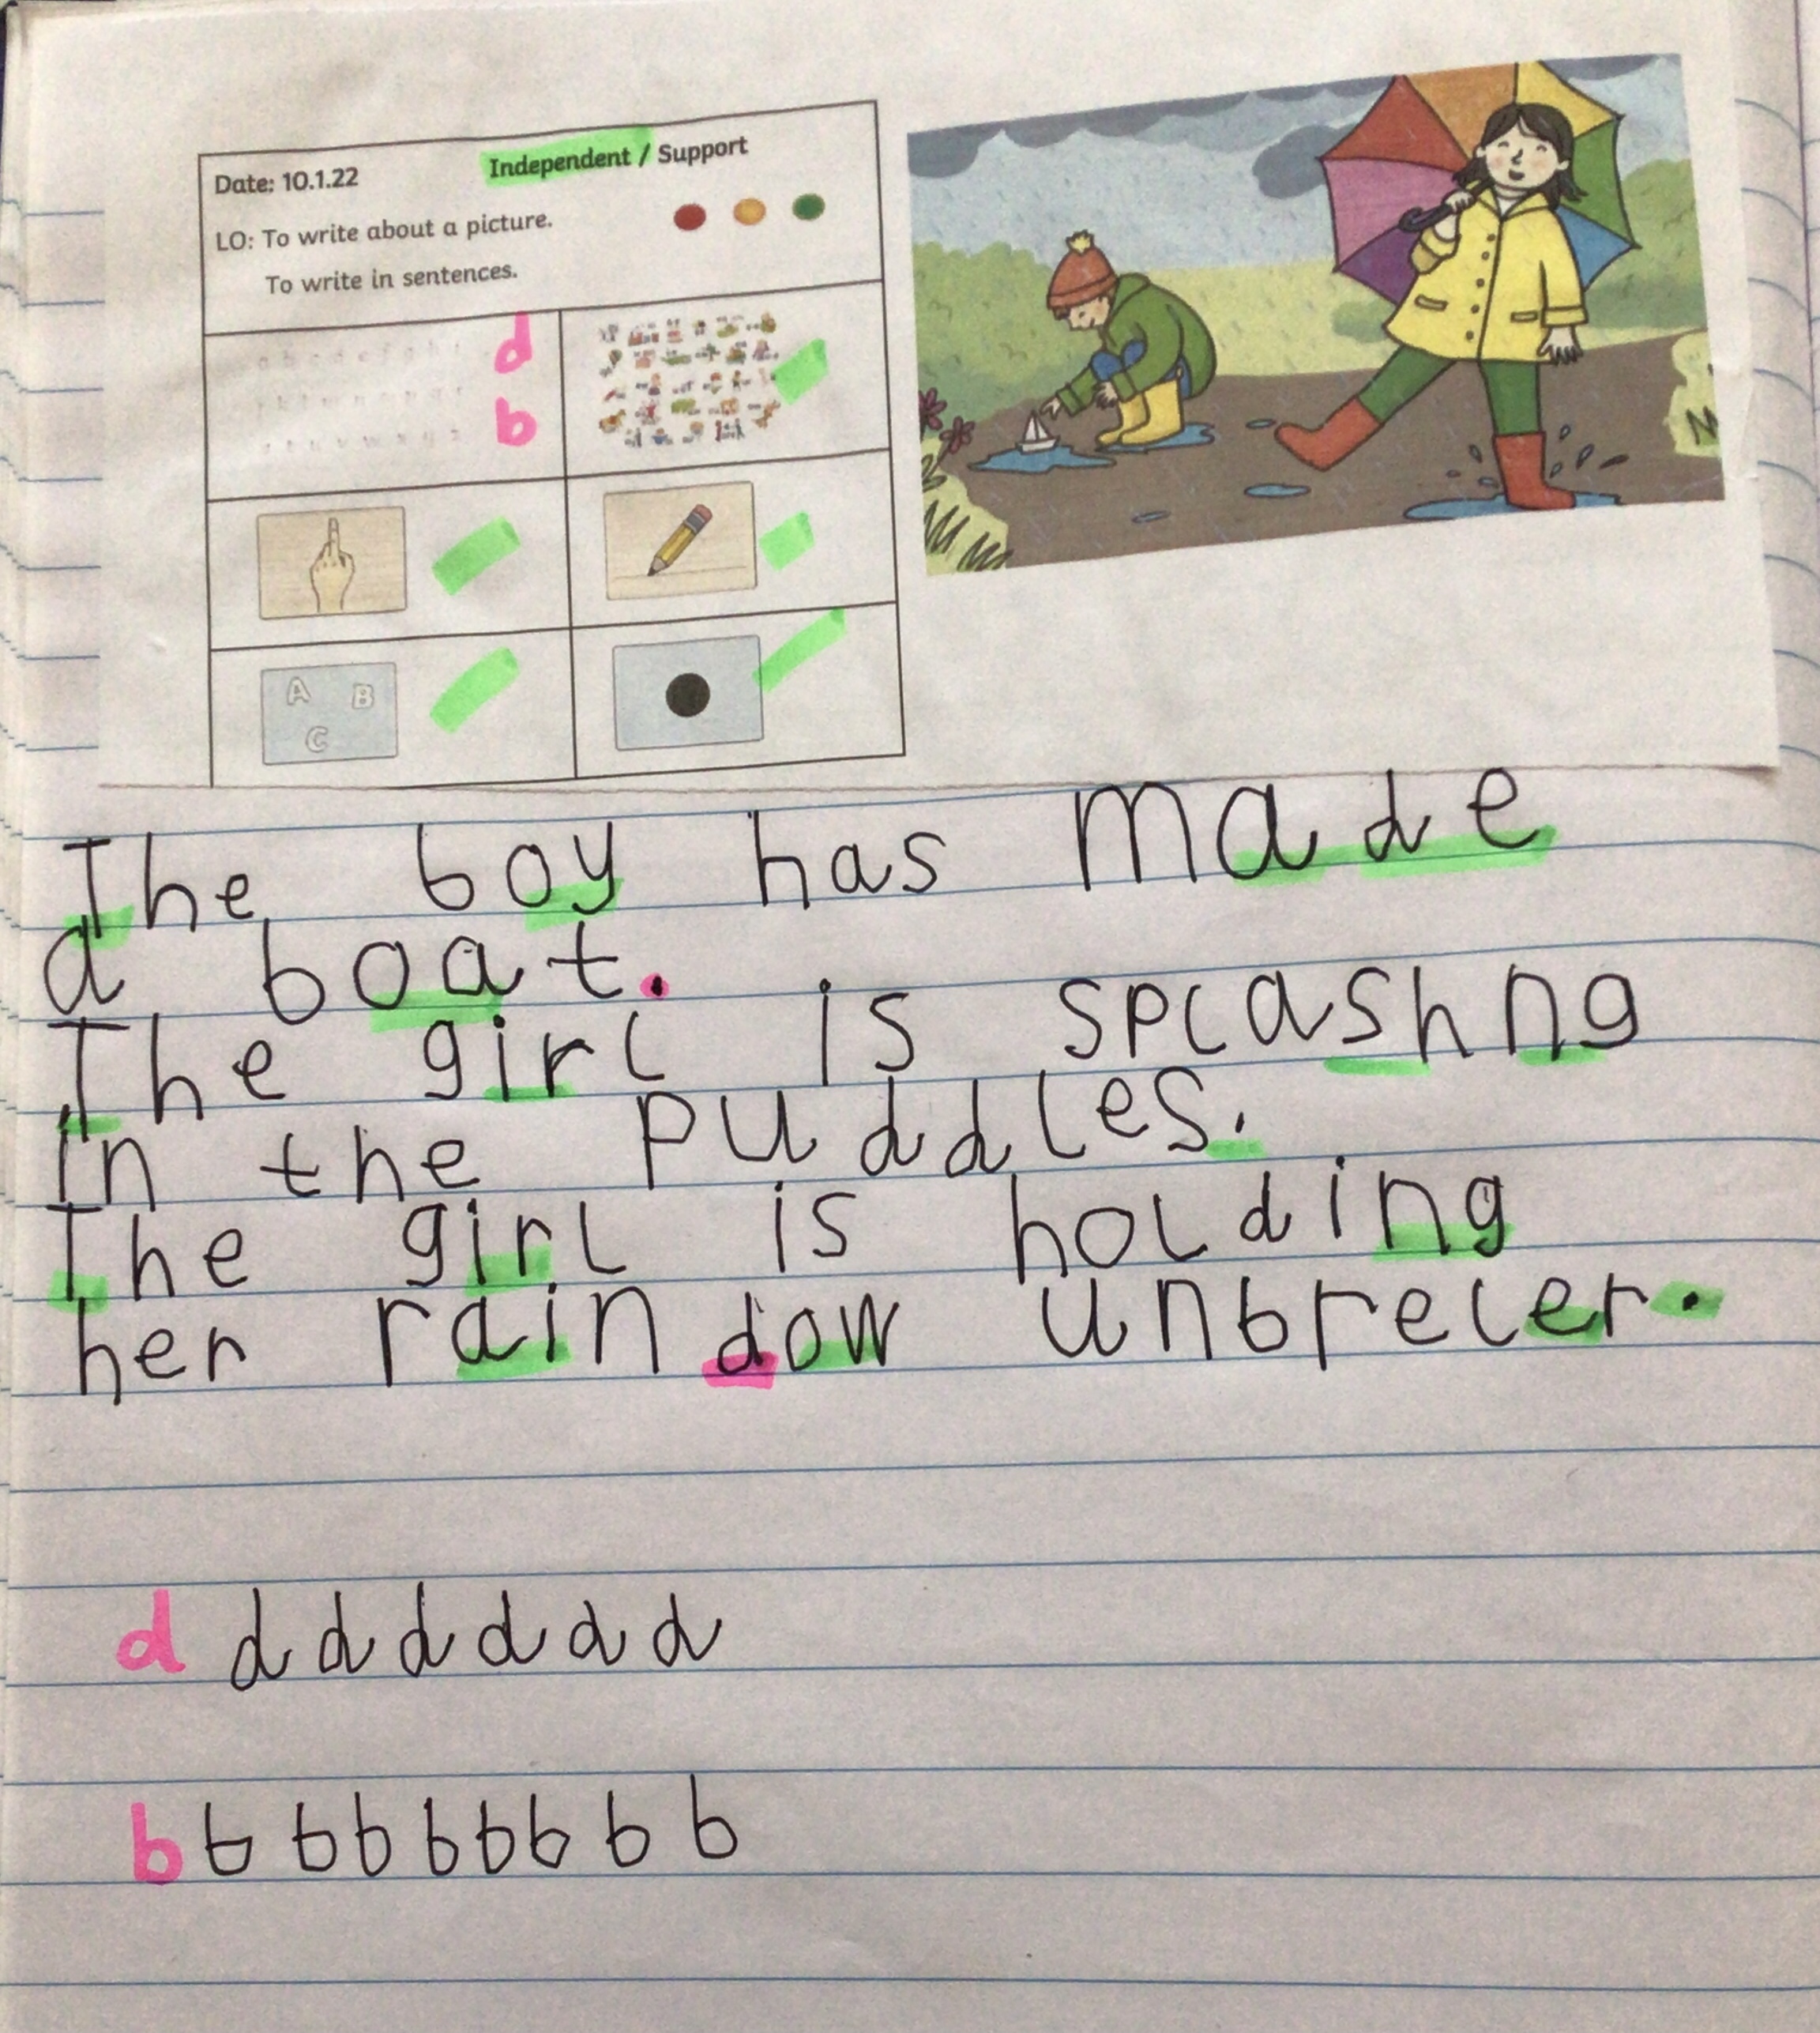 Date: 10.1.22 Independent / Support
LO: To write about a picture.
To write in sentences.
d
b
A B
C
The boy has made
a boat.
The girl is splashng
in the puddles.
The girl is holding
her rain dow unbrecer.
d d d d d d d
b b b b b b b b b